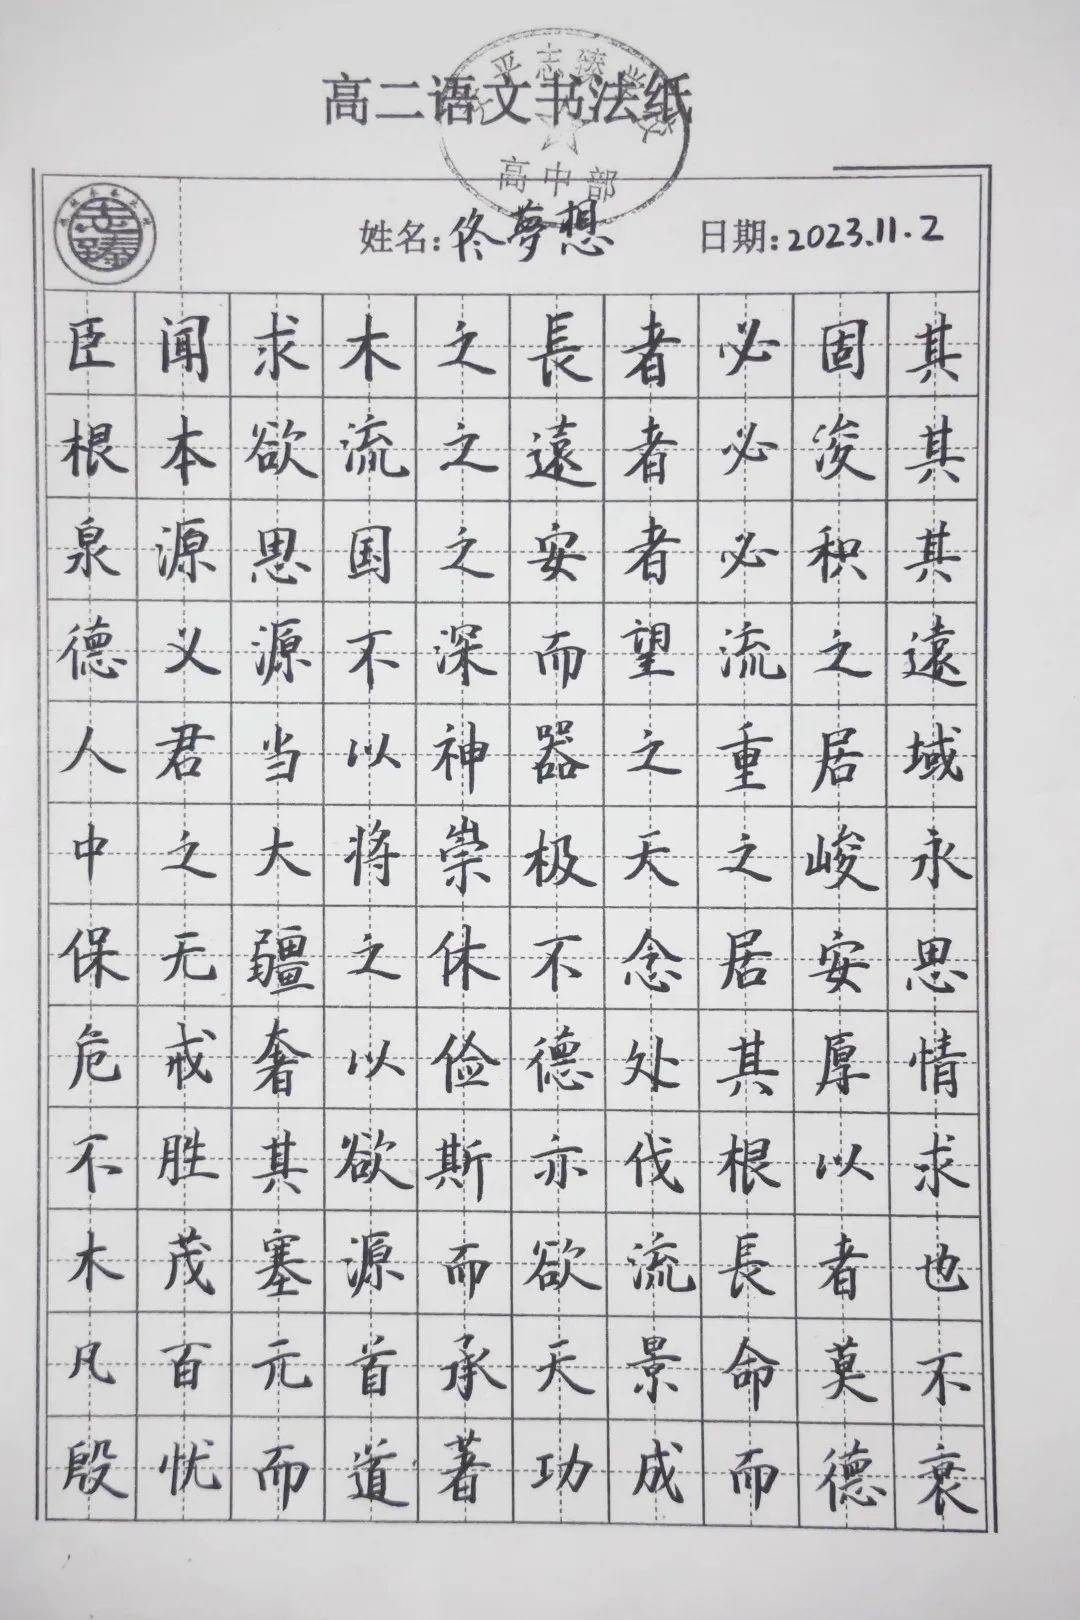 高二语文书法纸
平志臻学
高中部
志臻
姓名:佟夢想 日期:2023.11.2
臣闻求木之長者必固其
根本欲流之遠者必浚其
泉源思国之安者必积其
德义源不深而望流之遠
人君当以神器之重居域
中之大将崇极天之峻永
保无疆之休不念居安思
危戒奢以俭德处其厚情
不胜其欲斯亦伐根以求
木茂塞源而欲流長者也
凡百元首承天景命莫不
殷忧而道著功成而德衰